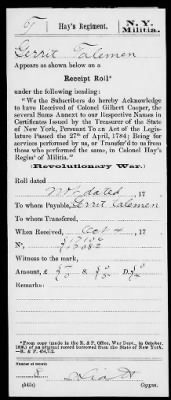 T | Hay's Regiment. | N. Y. Militia.
Gerrit Talemen
Appears as shown below on a
Receipt Roll*
under the following heading:
"We the Subscribers do hereby Acknowledge
to have Received of Colonel Gilbert Cooper, the
several Sums Annext to our Respective Names in
Certificates Issued by the Treasurer of the State
of New York, Pursuant to an Act of the Legislature
Passed the 27th of April, 1784; Being for
services performed by us, or Transfer'd to us from
those who performed the same, in Colonel Hay's
Regimt of Militia."
(Revolutionary War.)
Roll dated
Not dated, 17
To whom Payable, Gerrit Talemen
To whom Transferred,
When Received, Oct 4, 17
Nos
Witness to the mark,
Amount, £ S. D.
Remarks:
*From copy made in the R. & P. Office, War Dept., in October,
of an original record borrowed from the State of New York.
Number of record:
Copyist.